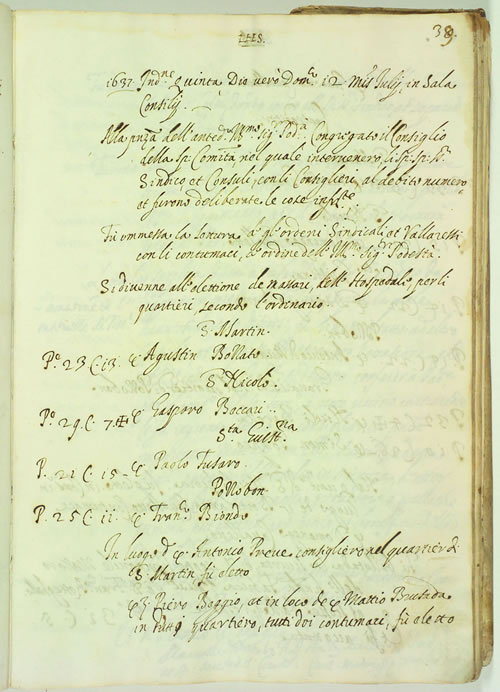 IHS.
38
9
1637. Ind.ne Quinta Dio verò Dom.co 12 Mis Julij in Sala
Consilij.
Alla pnza dell'anted.o Ill.mo Sig.r Pod.a Congregato il Consiglio
della Sp. Comità nel quale intervenero li Sp: Sp: S.ri
Sindico et Consuli, con li Consiglieri al debito numero
et furono deliberate le cose infr.te
Fù ommessa la lettura de gl'ordeni Sindicali, et Vallaressi
con li contumaci, d'ordine dell'Ill.mo Sig.r Podestà.
Si divenne all'elettione de massari, dell'Hospedale, per li
quartieri secondo l'ordenario.
S. Martin.
P.o 23 C. 13. Agustin Bollato.
S. Nicolò.
P.o 29. C. 7. Gasparo Boccari.
S.ta Eust.na
P. 21 C. 15 Paolo Fusaro.
Pollobon.
P. 25 C. 11. Fran.o Biondo
In luogo di Antonio Preve consigliero nel quartier di
S. Martin fù eletto
Piero Boggio, et in loco de Mattio
in quartiero, tutti doi contumaci, fù eletto